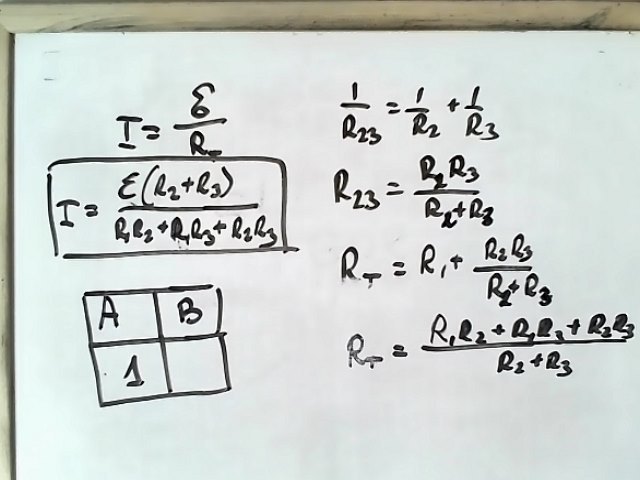 I = ε / R_T
I = ε(R₂+R₃) / R₁R₂+R₁R₃+R₂R₃
A B
1
1/R₂₃ = 1/R₂ + 1/R₃
R₂₃ = R₂R₃ / R₂+R₃
R_T = R₁ + R₂R₃ / R₂+R₃
R_T = R₁R₂ + R₁R₃ + R₂R₃ / R₂+R₃